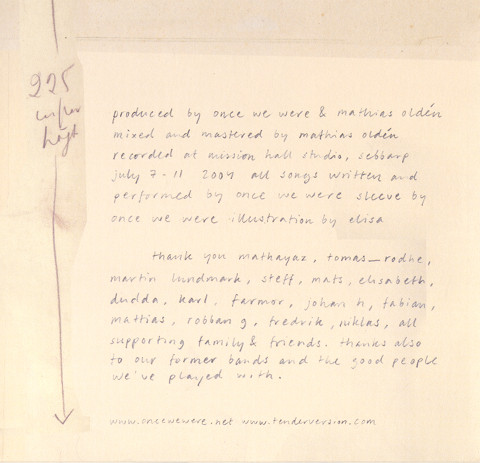 225
högt
produced by once we were & mathias oldén
mixed and mastered by mathias oldén
recorded at mission hall studio, sebbarp
july 7-11 2004 all songs written and
performed by once we were sleeve by
once we were illustration by elisa
thank you mathayaz, tomas_rodhe,
martin lundmark, steff, mats, elisabeth,
dudda, karl, farmor, johan h, fabian,
mattias, robban g, fredrik, niklas, all
supporting family & friends. thanks also
to our former bands and the good people
we've played with.
www.oncewewere.net www.tenderversion.com